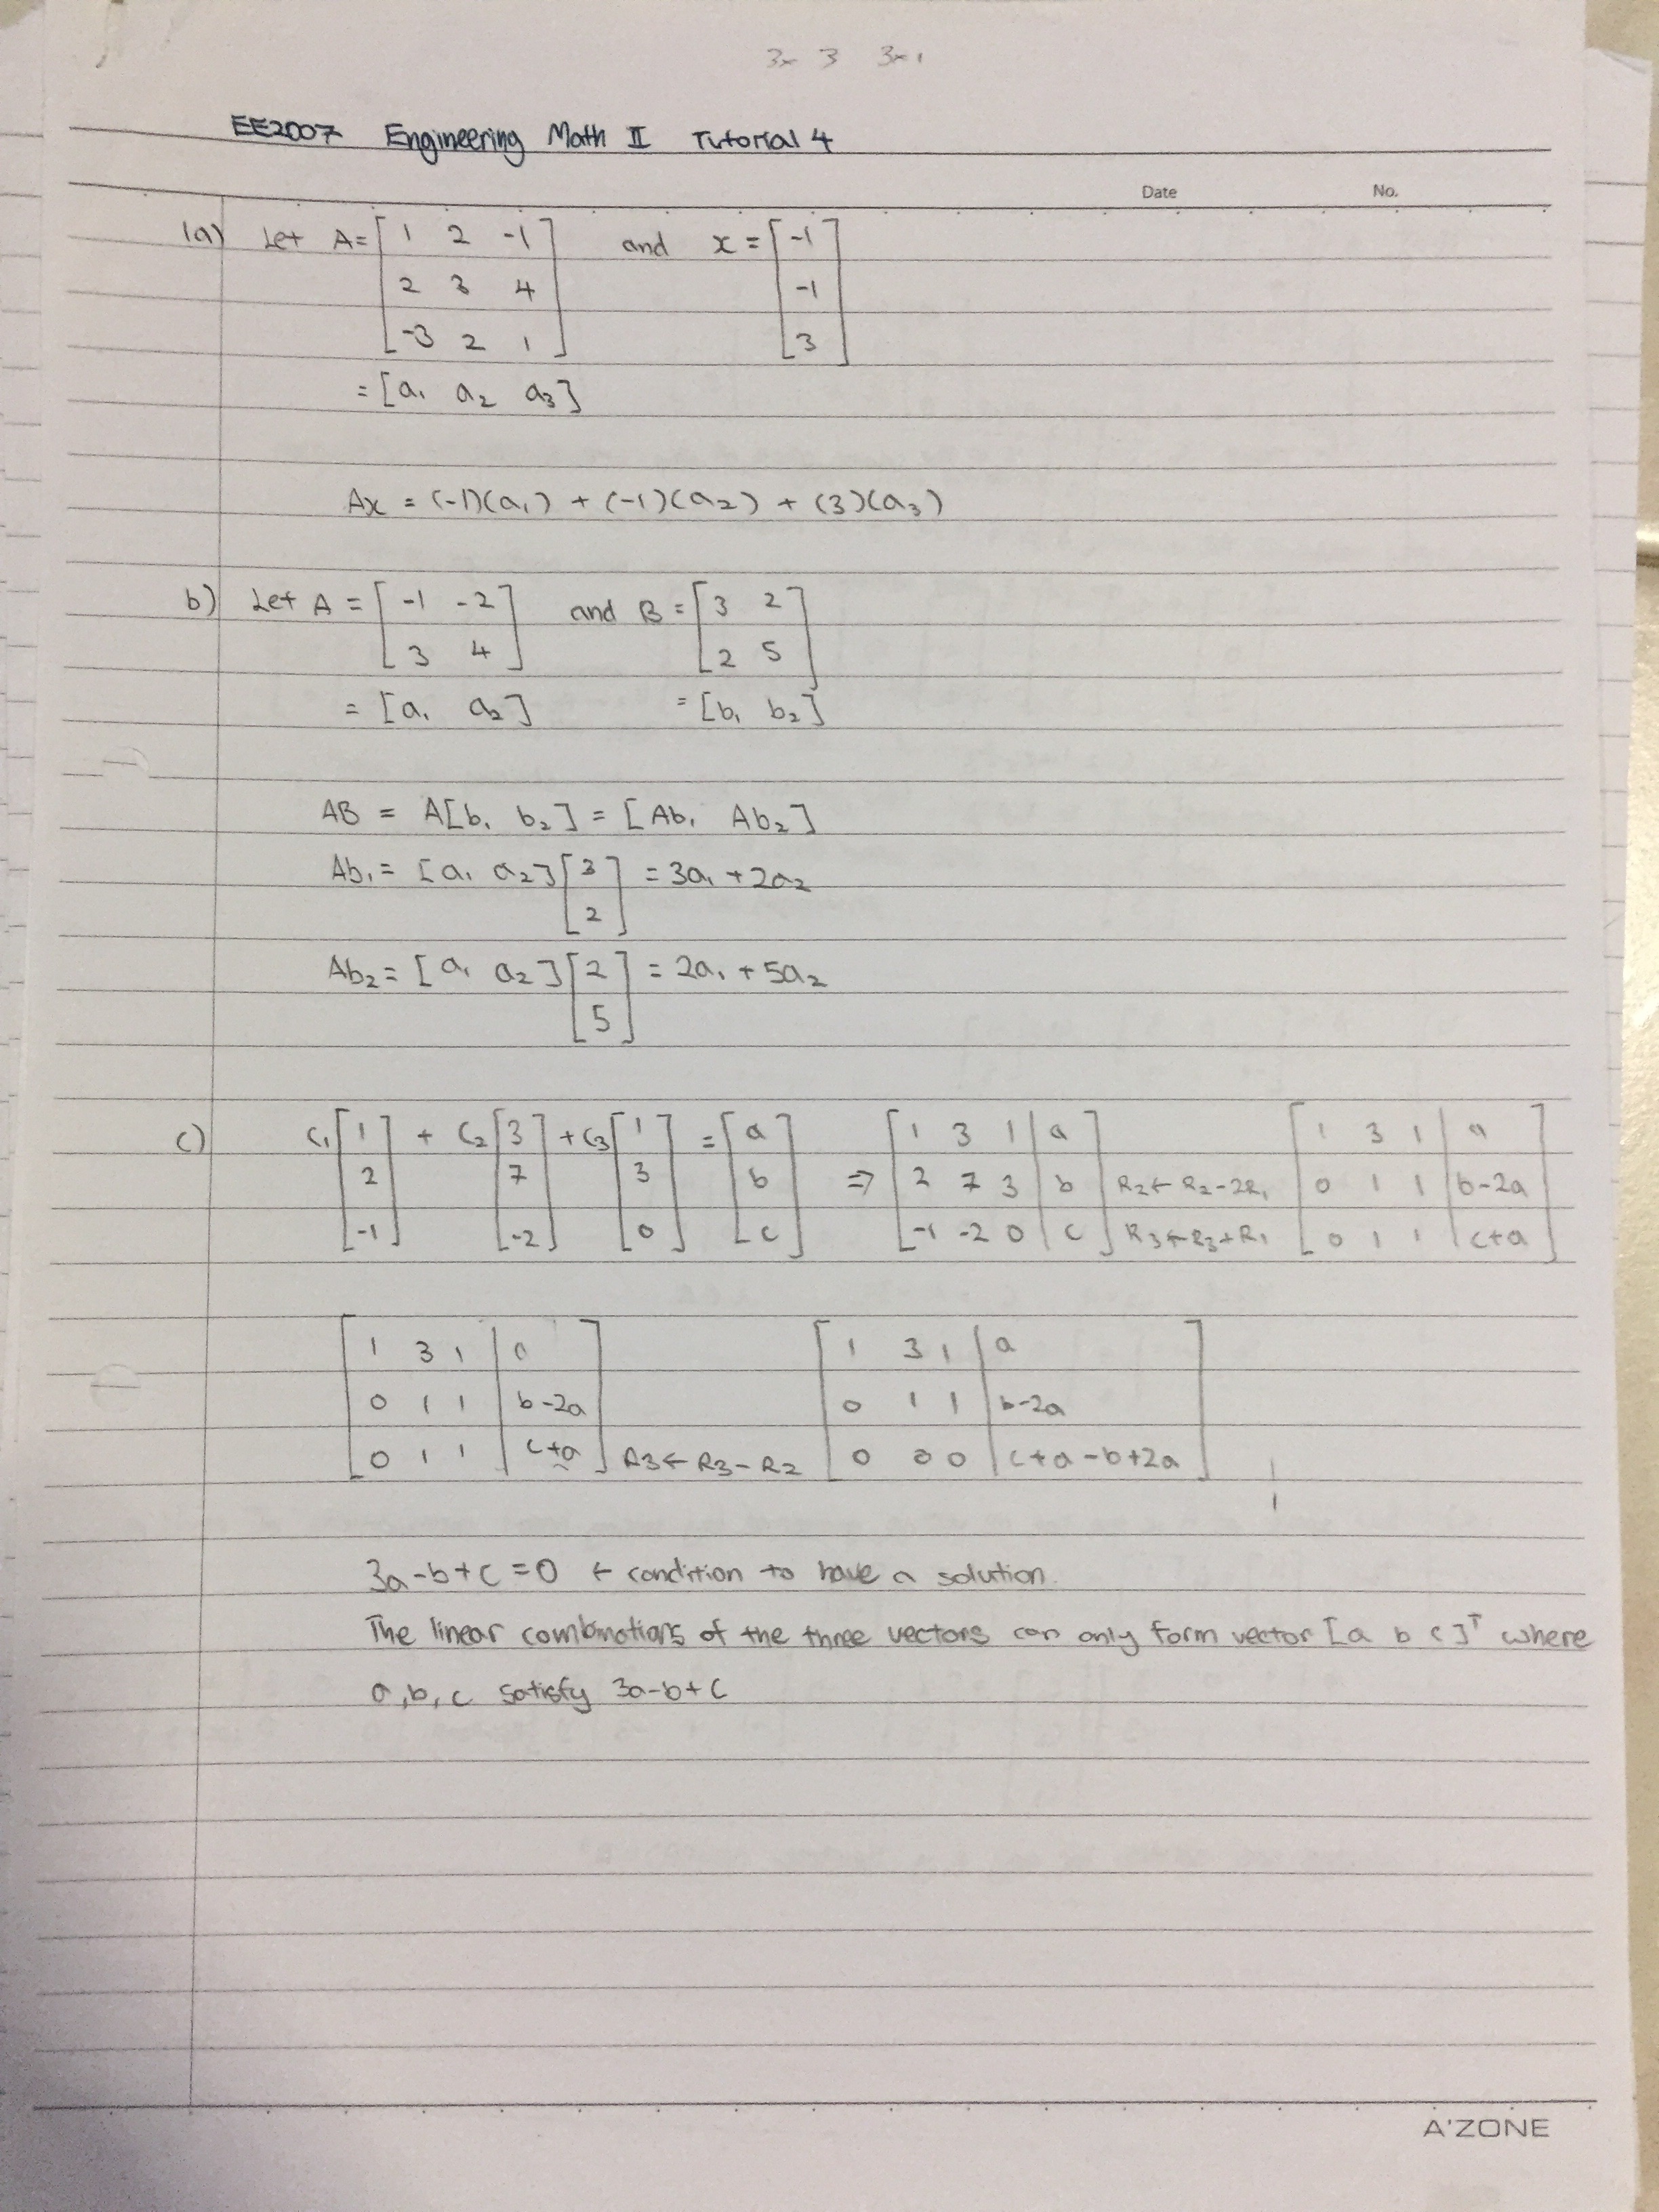 3x 3 3x1
EE2007 Engineering Math II Tutorial 4
Date No.
1a) Let A = [ 1 2 -1 ] and x = [ -1 ]
2 3 4 -1
-3 2 1 3
= [a₁ a₂ a₃]
Ax = (-1)(a₁) + (-1)(a₂) + (3)(a₃)
b) Let A = [ -1 -2 ] and B = [ 3 2 ]
3 4 2 5
= [a₁ a₂] = [b₁ b₂]
AB = A[b₁ b₂] = [Ab₁ Ab₂]
Ab₁ = [a₁ a₂][ 3 ] = 3a₁ + 2a₂
2
Ab₂ = [a₁ a₂][ 2 ] = 2a₁ + 5a₂
5
c) C₁[ 1 ] + C₂[ 3 ] + C₃[ 1 ] = [ a ] [ 1 3 1 | a ] [ 1 3 1 | a ]
2 7 3 b ⇒ 2 7 3 | b R₂ ← R₂-2R₁ 0 1 1 | b-2a
-1 -2 0 c -1 -2 0 | c R₃ ← R₃+R₁ 0 1 1 | c+a
[ 1 3 1 | a ] [ 1 3 1 | a ]
0 1 1 | b-2a 0 1 1 | b-2a
0 1 1 | c+a R₃ ← R₃-R₂ 0 0 0 | c+a-b+2a
3a-b+c = 0 ← condition to have a solution.
The linear combinations of the three vectors can only form vector [a b c]ᵀ where
a, b, c satisfy 3a-b+c
A'ZONE